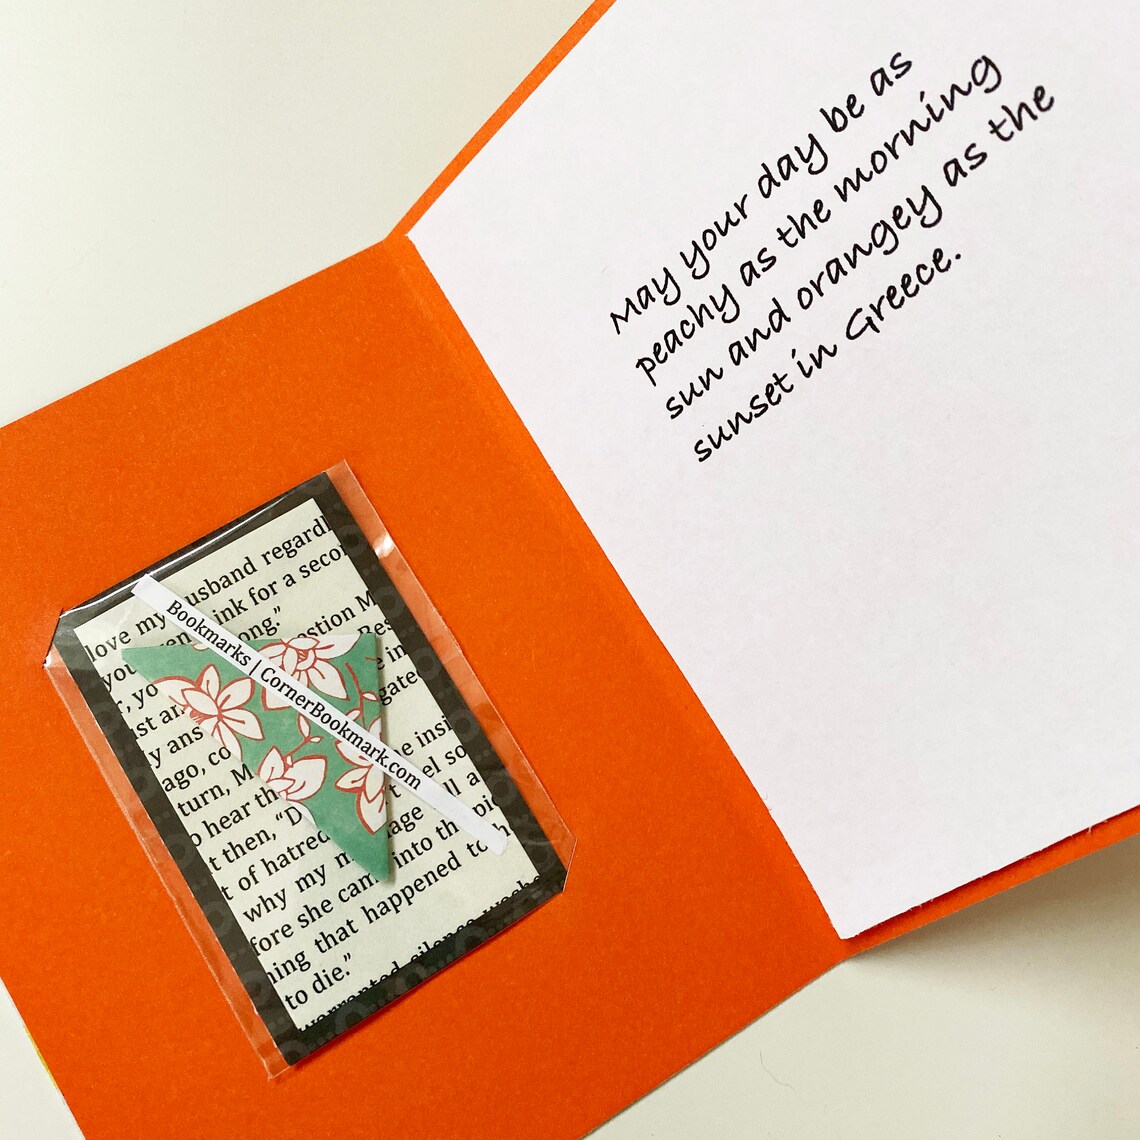 May your day be as
peachy as the morning
sun and orangey as the
sunset in Greece.
Bookmarks | CornerBookmark.com
love my husband regardl
you ink for a secon
ong."
estion M
, yo Bes
st an e in
y ans gate
ago, co
turn, M e insi
o hear th el so
t then, "D ll a
t of hatred age
why my m the pic
fore she cam into
ning that happened to h
to die."
warranted silence